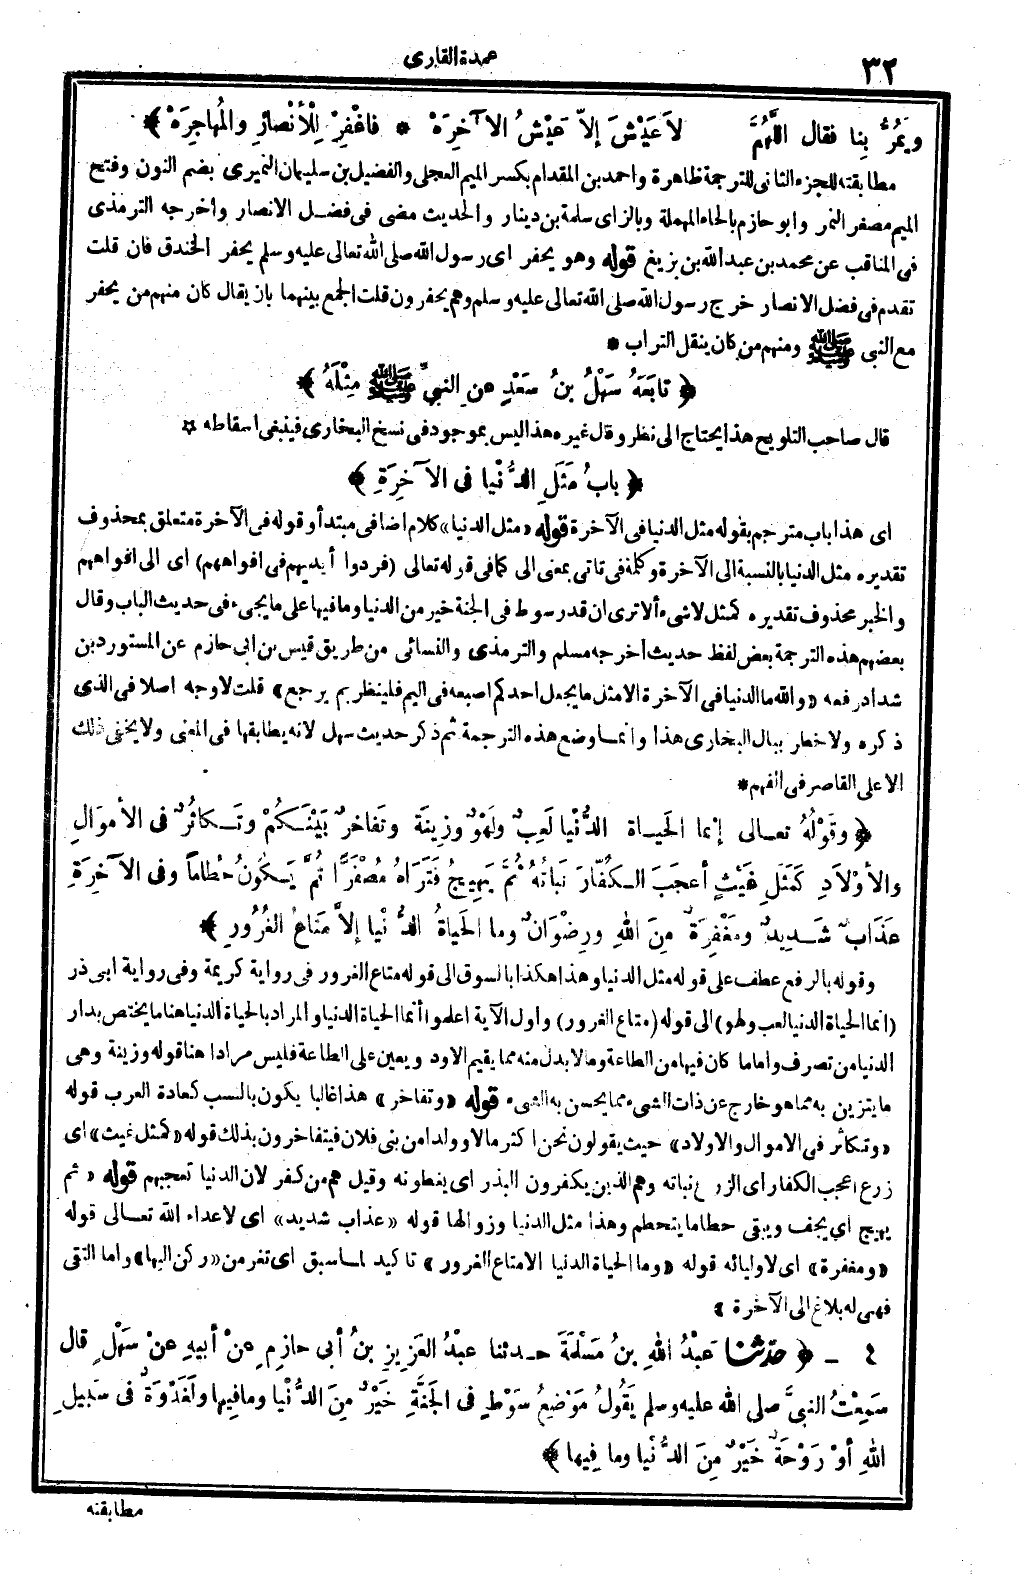 عمدة القارى
٣٢
ويَمُرُّ بِنا فقال اللَّهُمَّ لاَ عَيْشَ إلاّ عَيْشُ الآخِرَهْ * فاغْفِرْ لِلْأنْصارِ والمُهاجِرَهْ ﴾
مطابقته للجزء الثانى للترجمة ظاهرة واحمد بن المقدام بكسر الميم العجلى والفضيل بن سليمان النميرى بضم النون وفتح
الميم مصغر النمر وابو حازم بالحاء المهملة وبالزاى سلمة بن دينار والحديث مضى فى فضل الانصار واخرجه الترمذى
فى المناقب عن محمد بن عبد الله بن بزيغ قوله وهو يحفر اى رسول الله صلى الله تعالى عليه وسلم يحفر الخندق فان قلت
تقدم فى فضل الانصار خرج رسول الله صلى الله تعالى عليه وسلم وهم يحفرون قلت الجمع بينهما بان يقال كان منهم من يحفر
مع النبى ﷺ ومنهم من كان ينقل التراب *
﴿ تابَعَهُ سَهْلُ بنُ سَعْدٍ عنِ النبيِّ ﷺ مِثْلَهُ ﴾
قال صاحب التلويح هذا يحتاج الى نظر وقال غيره هذا ليس بموجود فى نسخ البخارى فينبغى اسقاطه *
﴿ بابُ مَثَلِ الدُّنْيا فى الآخِرَةِ ﴾
اى هذا باب مترجم بقوله مثل الدنيا فى الآخرة قوله «مثل الدنيا» كلام اضافى مبتدأ وقوله فى الآخرة متعلق بمحذوف
تقديره مثل الدنيا بالنسبة الى الآخرة وكلمة فى تاتى بمعنى الى كما فى قوله تعالى (فردوا أيديهم فى افواههم) اى الى افواههم
والخبر محذوف تقديره كمثل لاشىء ألا ترى ان قدر سوط فى الجنة خير من الدنيا وما فيها على ما يجىء فى حديث الباب وقال
بعضهم هذه الترجمة بعض لفظ حديث أخرجه مسلم والترمذى والنسائى من طريق قيس بن ابى حازم عن المستورد بن
شداد رفعه «والله ما الدنيا فى الآخرة الا مثل ما يجعل احدكم اصبعه فى اليم فلينظر بم يرجع» قلت لا وجه اصلا فى الذى
ذكره ولا خطر ببال البخارى هذا وانما وضع هذه الترجمة ثم ذكر حديث سهل لانه يطابقها فى المعنى ولا يخفى ذلك
الا على القاصر فى الفهم *
﴿ وقَوْلُهُ تعالى إنما الحَياة الدُّنْيا لَعِبٌ ولَهْوٌ وزِينَة وتَفاخرٌ بَيْنَكُمْ وتَكاثُرٌ فى الأموَالِ
والأوْلاَدِ كَمَثَلِ غَيْثٍ أعجَبَ الكُفَّارَ نَباتُهُ ثُمَّ يَهِيجُ فَتَرَاهُ مُصْفَرًّا ثُمَّ يَكُونُ حُطاماً وفى الآخِرَةِ
عَذَابٌ شَدِيدٌ ومَغْفِرَةٌ مِنَ اللهِ ورِضْوَانٌ وما الحَياةُ الدُّنْيا إلاَّ مَتاعُ الغُرُورِ ﴾
وقوله بالرفع عطف على قوله مثل الدنيا وهذا هكذا بالسوق الى قوله متاع الغرور فى رواية كريمة وفى رواية ابى ذر
(انما الحياة الدنيا لعب ولهو) الى قوله (متاع الغرور) واول الآية اعلموا أنما الحياة الدنيا والمراد بالحياة الدنيا هنا ما يختص بدار
الدنيا من تصرف واما ما كان فيها من الطاعة وما لا بد منه مما يقيم الاود ويعين على الطاعة فليس مرادا هنا قوله وزينة وهى
ما يتزين به مما هو خارج عن ذات الشىء مما يحسن به الشىء قوله «وتفاخر» هذا غالبا يكون بالنسب كعادة العرب قوله
«وتكاثر فى الاموال والاولاد» حيث يقولون نحن اكثر مالا وولدا من بنى فلان فيتفاخرون بذلك قوله «كمثل غيث» اى
زرع اعجب الكفار اى الزراع نباته وهم الذين يكفرون البذر اى يغطونه وقيل هم من كفر لان الدنيا تعجبهم قوله «ثم
يهيج أى يجف ويبقى حطاما يتحطم وهذا مثل الدنيا وزوالها قوله «عذاب شديد» اى لاعداء الله تعالى قوله
«ومغفرة» اى لاوليائه قوله «وما الحياة الدنيا الا متاع الغرور» تاكيد لما سبق اى تغر من «ركن اليها» واما التقى
فهى له بلاغ الى الآخرة *
٤ - ﴿ حدثنا عَبْدُ اللهِ بنُ مَسْلَمَةَ حدثنا عبدُ العَزِيزِ بنُ أبى حازِمٍ عنْ أبيهِ عنْ سَهْلٍ قال
سَمِعْتُ النبىَّ صلى الله عليه وسلم يَقُولُ مَوْضِعُ سَوْطٍ فى الجَنَّةِ خَيْرٌ مِنَ الدُّنْيا وما فِيها ولَغَدْوَةٌ فى سَبِيلِ
اللهِ أوْ رَوْحَةٌ خَيْرٌ مِنَ الدُّنْيا وما فِيها ﴾
مطابقته